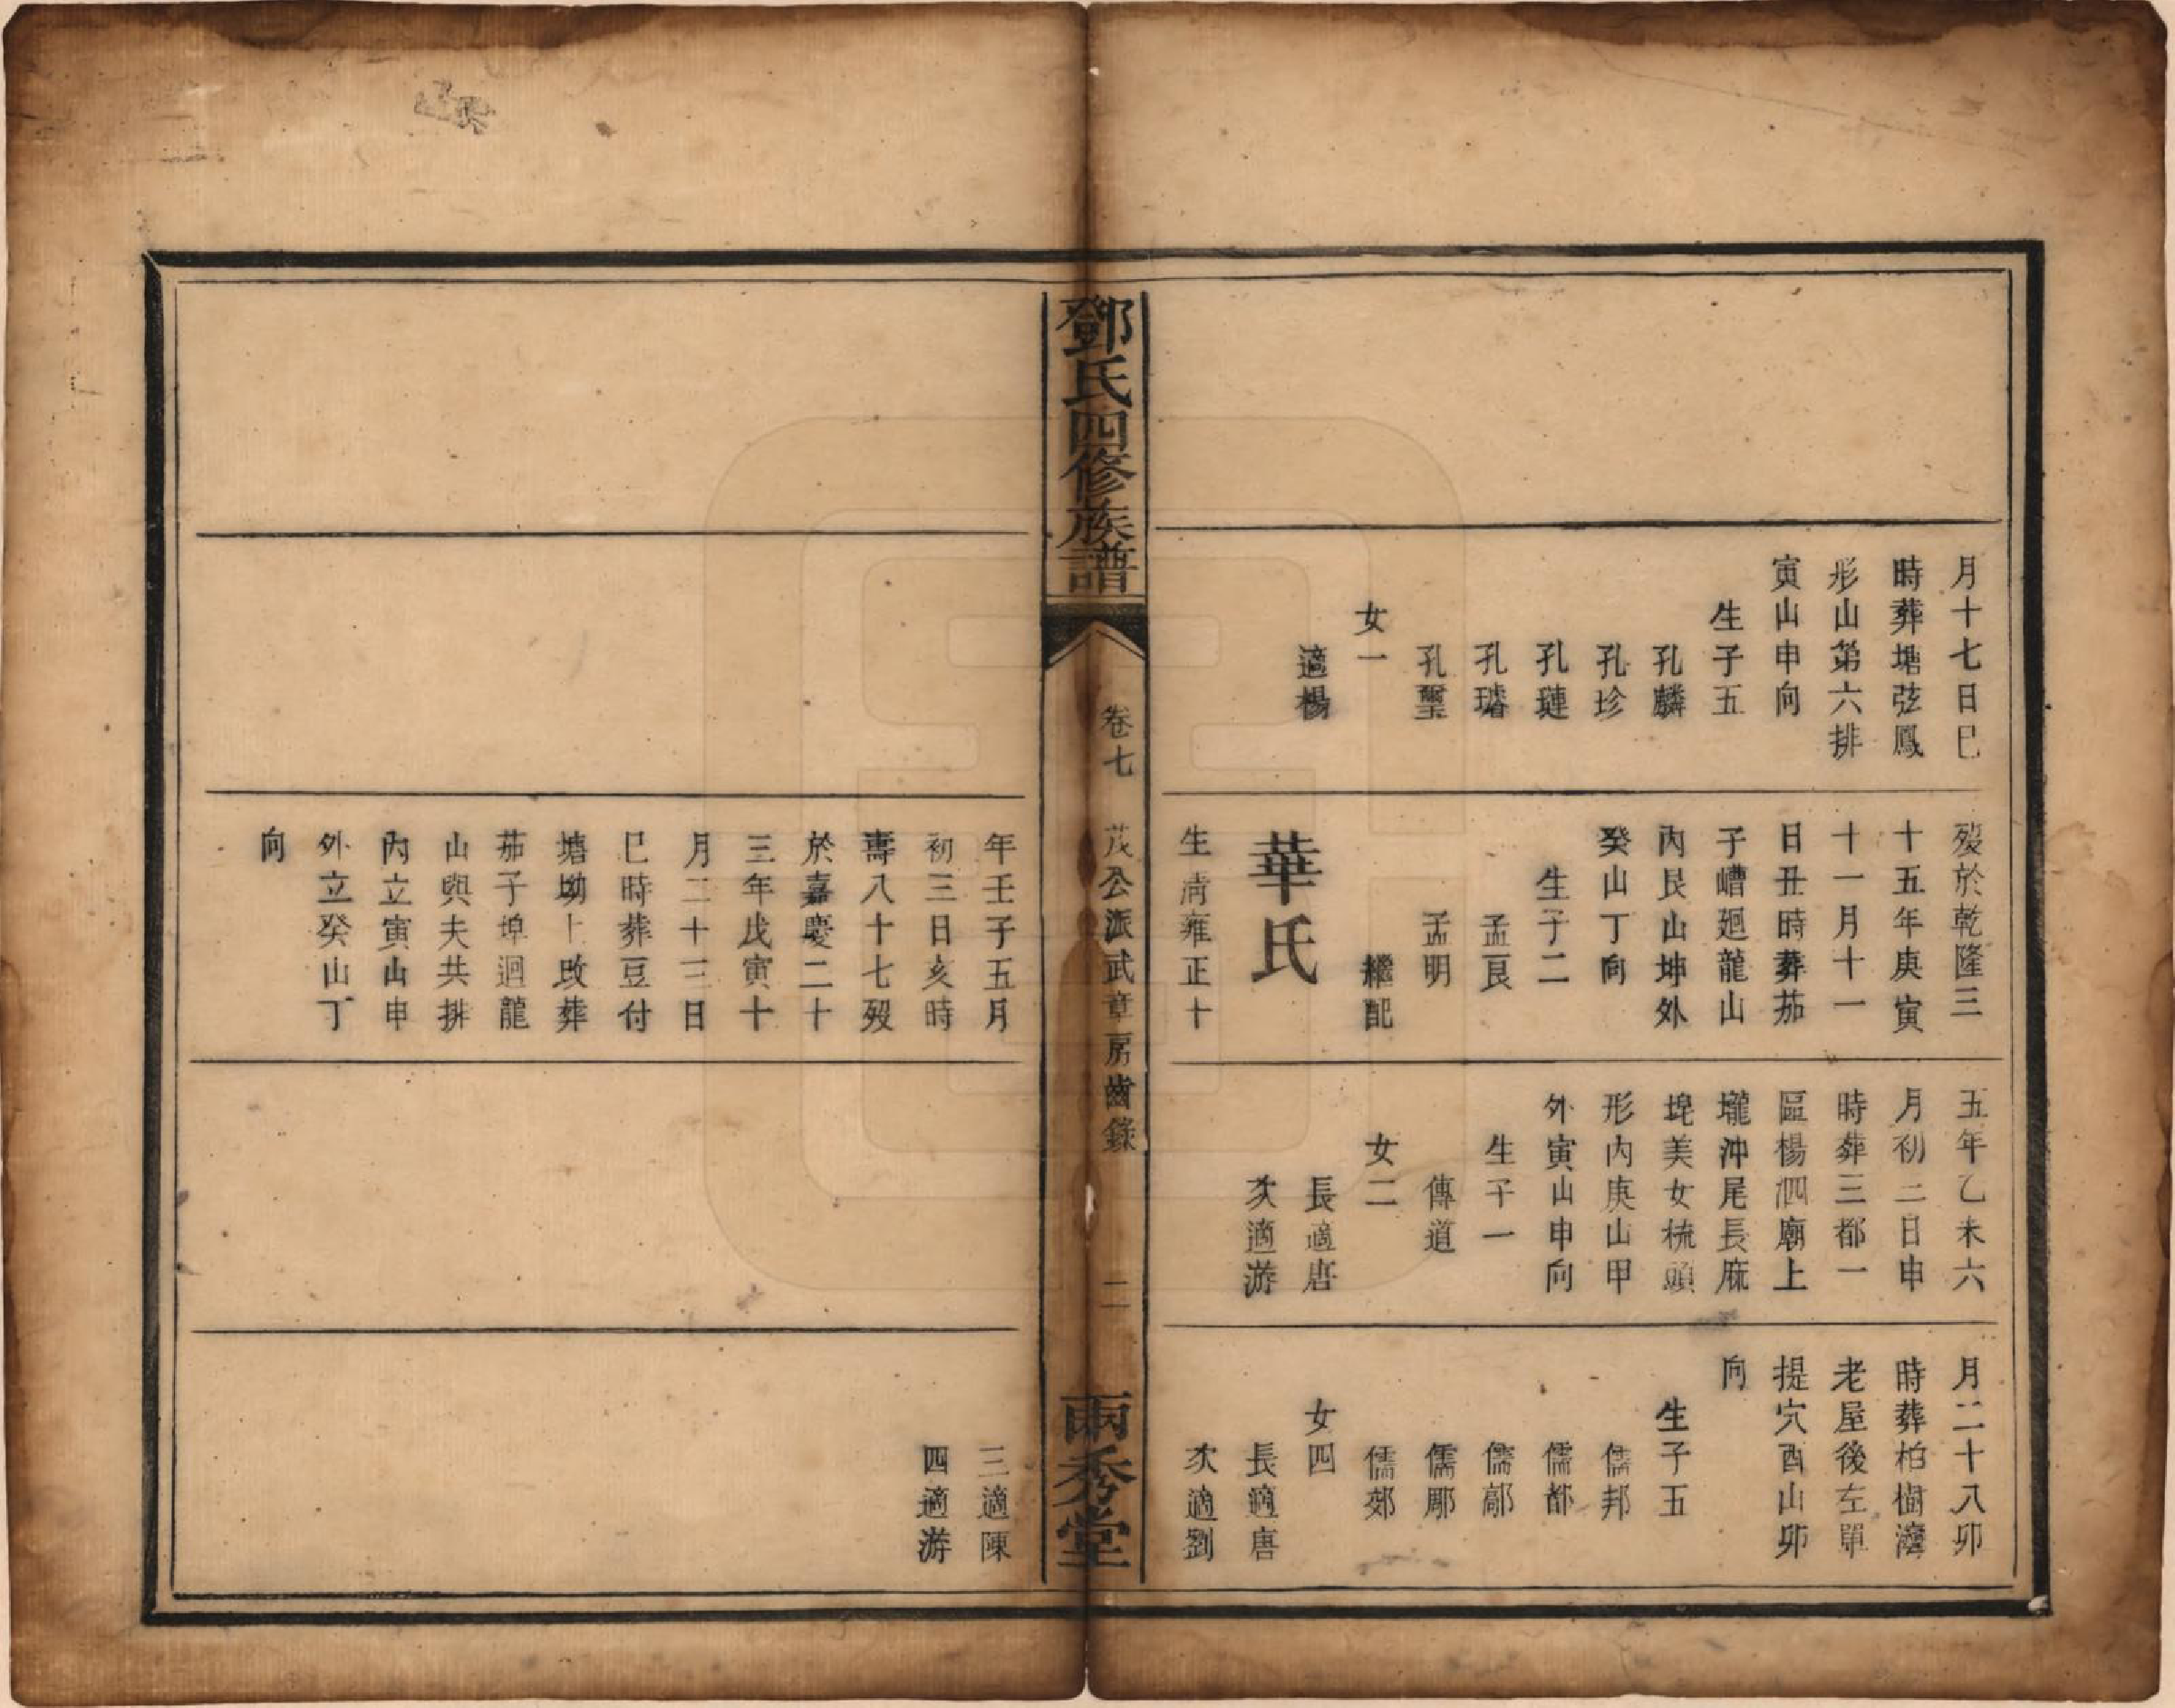 月十七日巳
時葬塘弦鳳
形山第六排
寅山申向
生子五
孔麟
孔珍
孔璉
孔璿
孔璽
女一
適楊
歿於乾隆三
十五年庚寅
十一月十一
日丑時葬茄
子嶆廻龍山
內艮山坤外
癸山丁向
生子二
孟良
孟明
繼配
華氏
生清雍正十
五年乙未六
月初二日申
時葬三都一
區楊泗廟上
壠沖尾長麻
埄美女梳頭
形內庚山甲
外寅山申向
生子一
傳道
女二
長適唐
次適游
月二十八卯
時葬柏樹灣
老屋後左單
提穴酉山卯
向
生子五
儒邦
儒都
儒鄗
儒郮
儒郊
女四
長適唐
次適劉
鄧氏四修族譜
卷七
茂公派武章房齒錄
二
兩秀堂
年壬子五月
初三日亥時
壽八十七歿
於嘉慶二十
三年戊寅十
月二十三日
巳時葬豆付
塘坳上改葬
茄子埠迴龍
山與夫共排
內立寅山申
外立癸山丁
向
三適陳
四適游